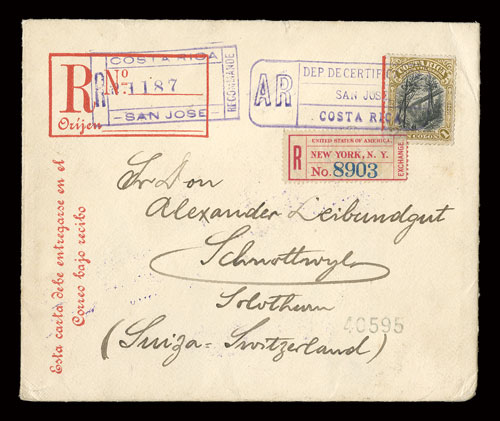 COSTA RICA
R
R
No
1187
RECOMMANDÉ
SAN JOSE
Orijen
AR
DEP DE CERTIFIC
SAN JOSE
COSTA RICA
COSTA RICA
1
COLON
1
UNITED STATES OF AMERICA.
R
NEW YORK, N. Y.
EXCHANGE
No. 8903
Esta carta debe entregarse en el
Correo bajo recibo
Sr Don
Alexander Leibundgut
Schnottwyl
Solothurn
40595
(Suiza = Switzerland)